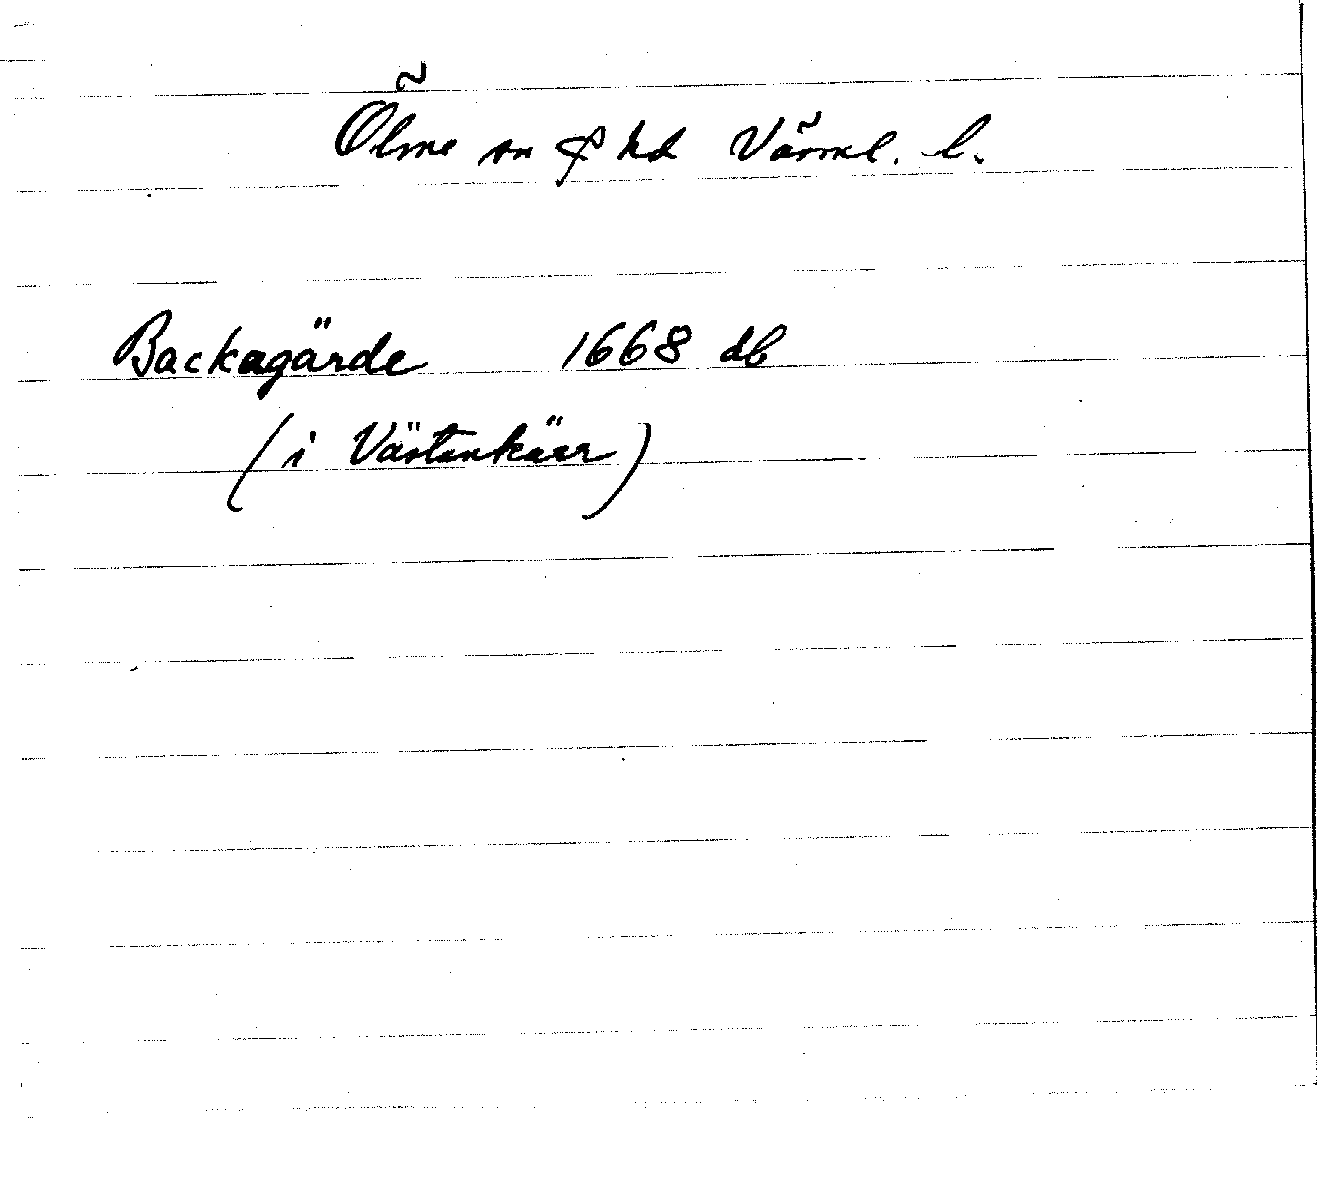 Ölme sn & hd Värml. l.
Backagärde 1668 db
(i Västankärr)